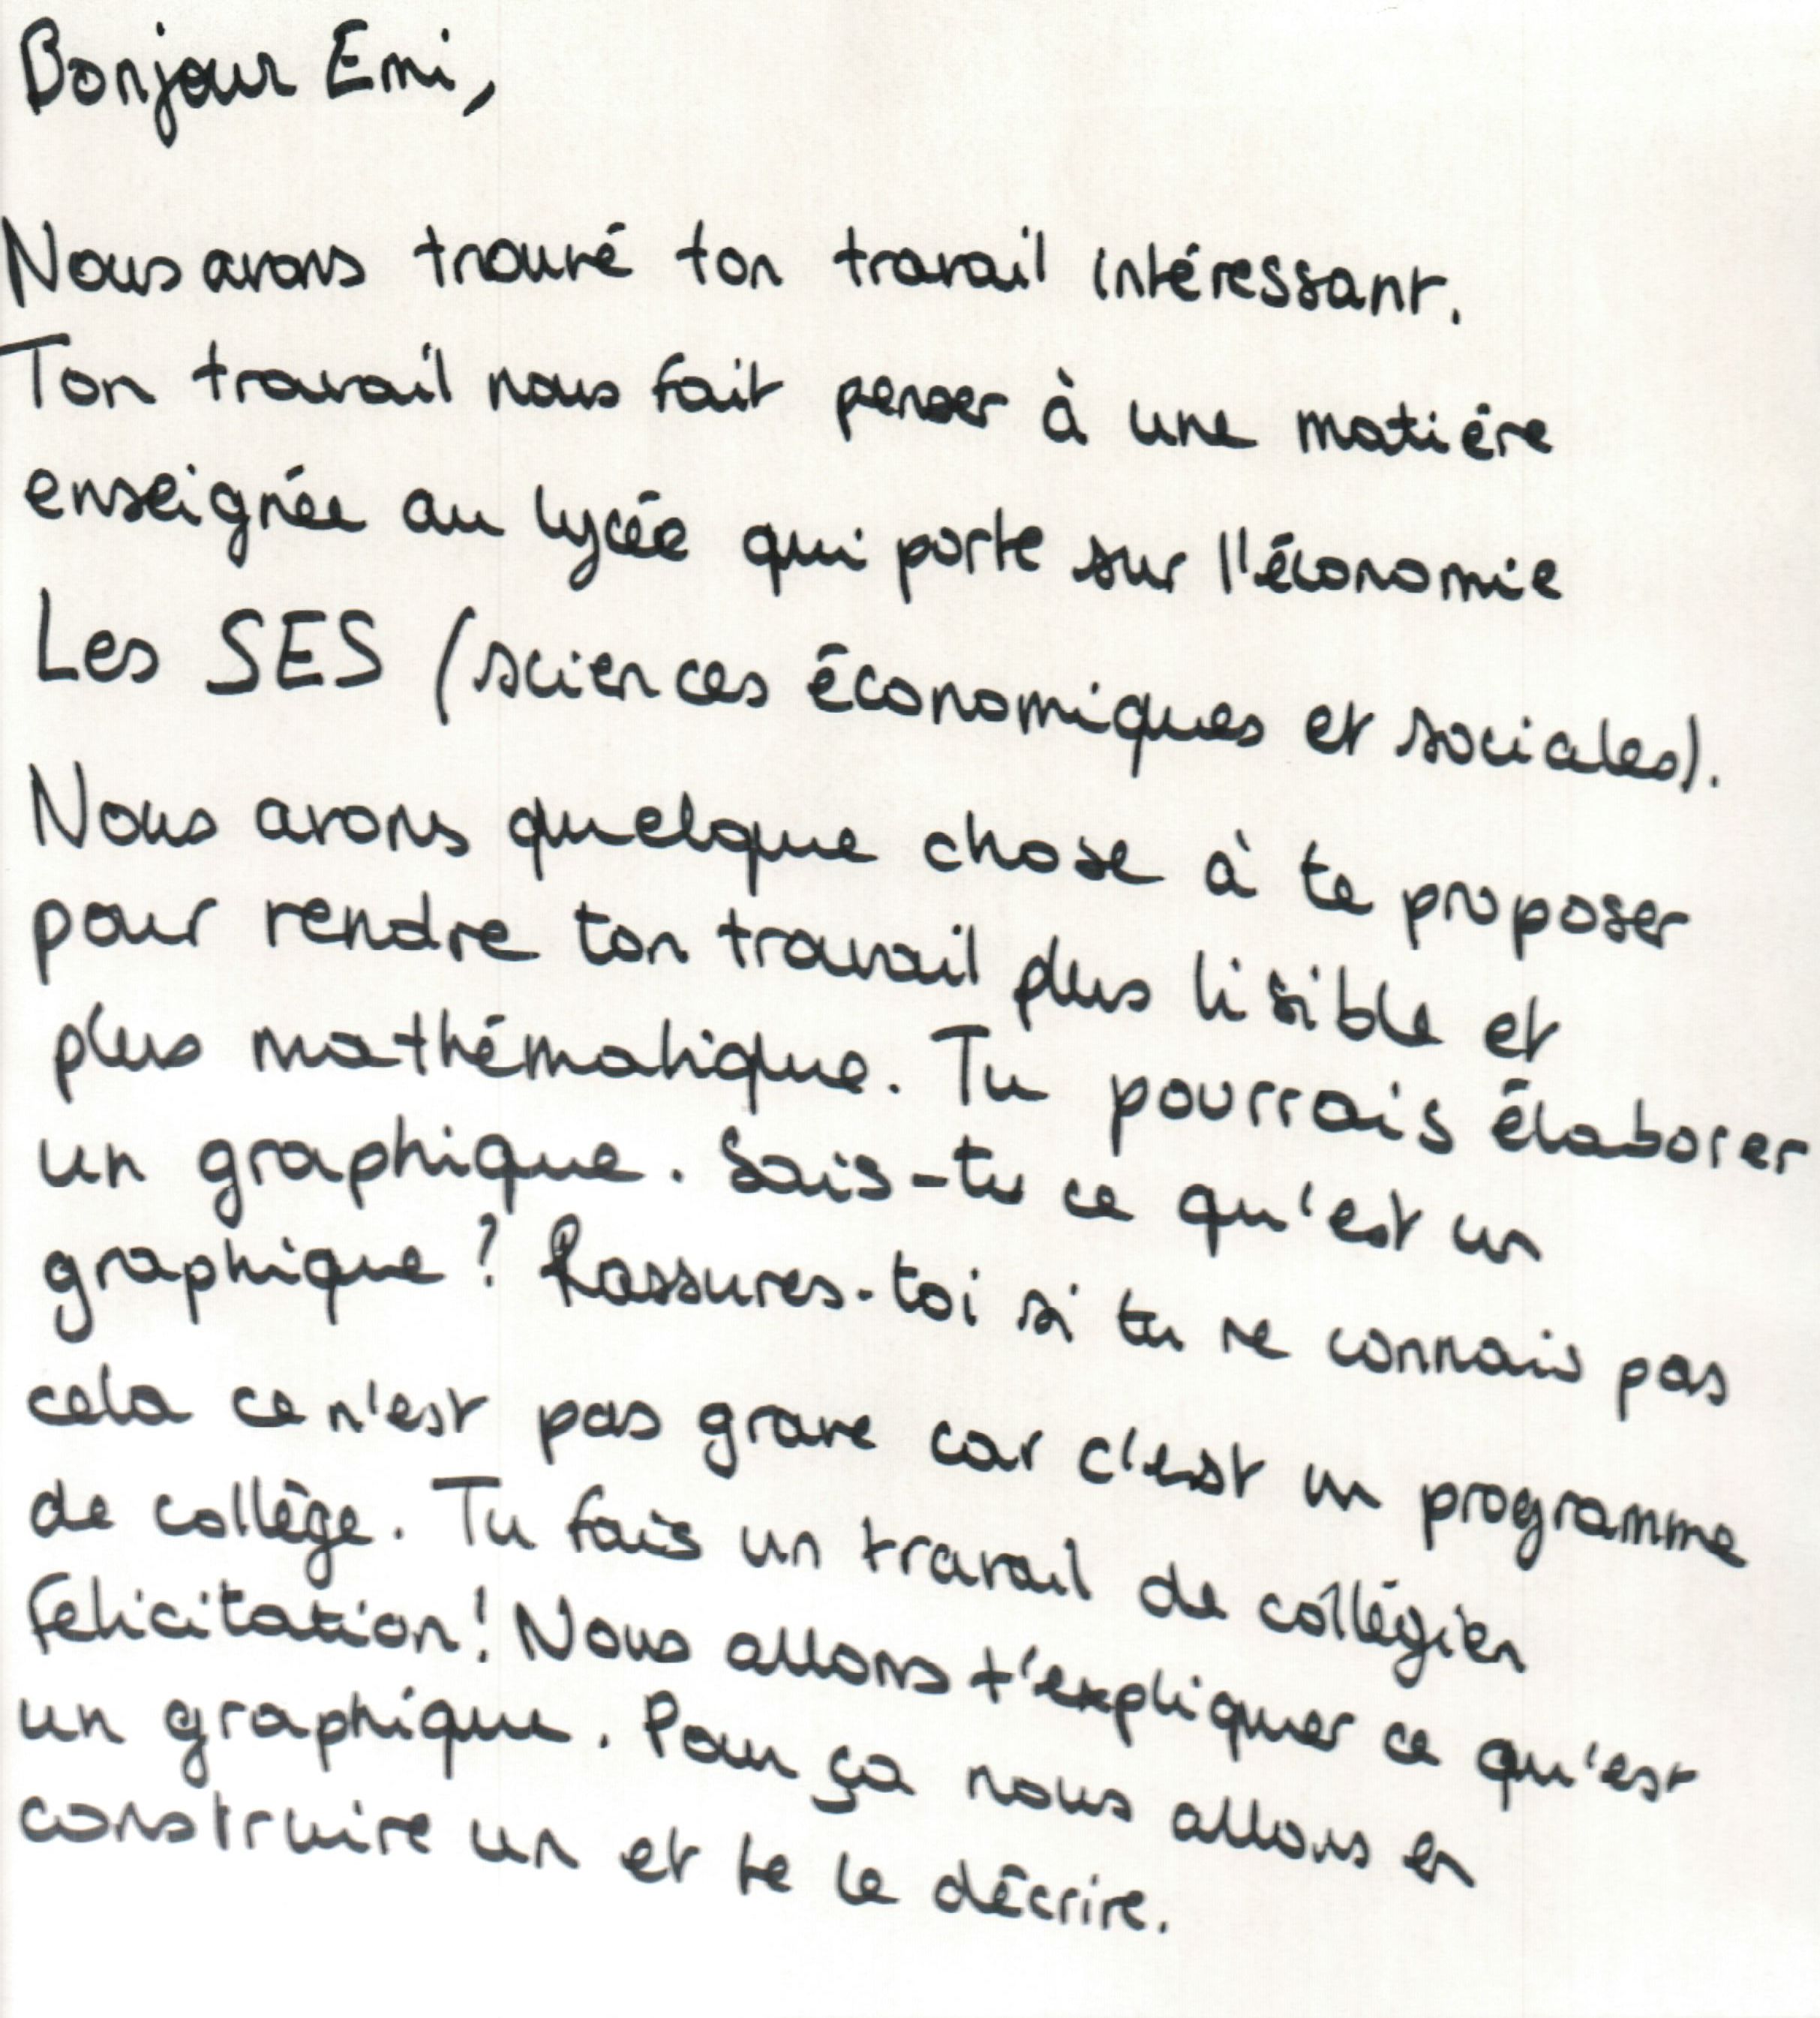 Bonjour Emi,
Nous avons trouvé ton travail intéressant.
Ton travail nous fait penser à une matière
enseignée au lycée qui porte sur l'économie
Les SES (sciences économiques et sociales).
Nous avons quelque chose à te proposer
pour rendre ton travail plus lisible et
plus mathématique. Tu pourrais élaborer
un graphique. Sais-tu ce qu'est un
graphique ? Rassures-toi si tu ne connais pas
cela ce n'est pas grave car c'est un programme
de collège. Tu fais un travail de collégien
Felicitation ! Nous allons t'expliquer ce qu'est
un graphique. Pour ça nous allons en
construire un et te le décrire.